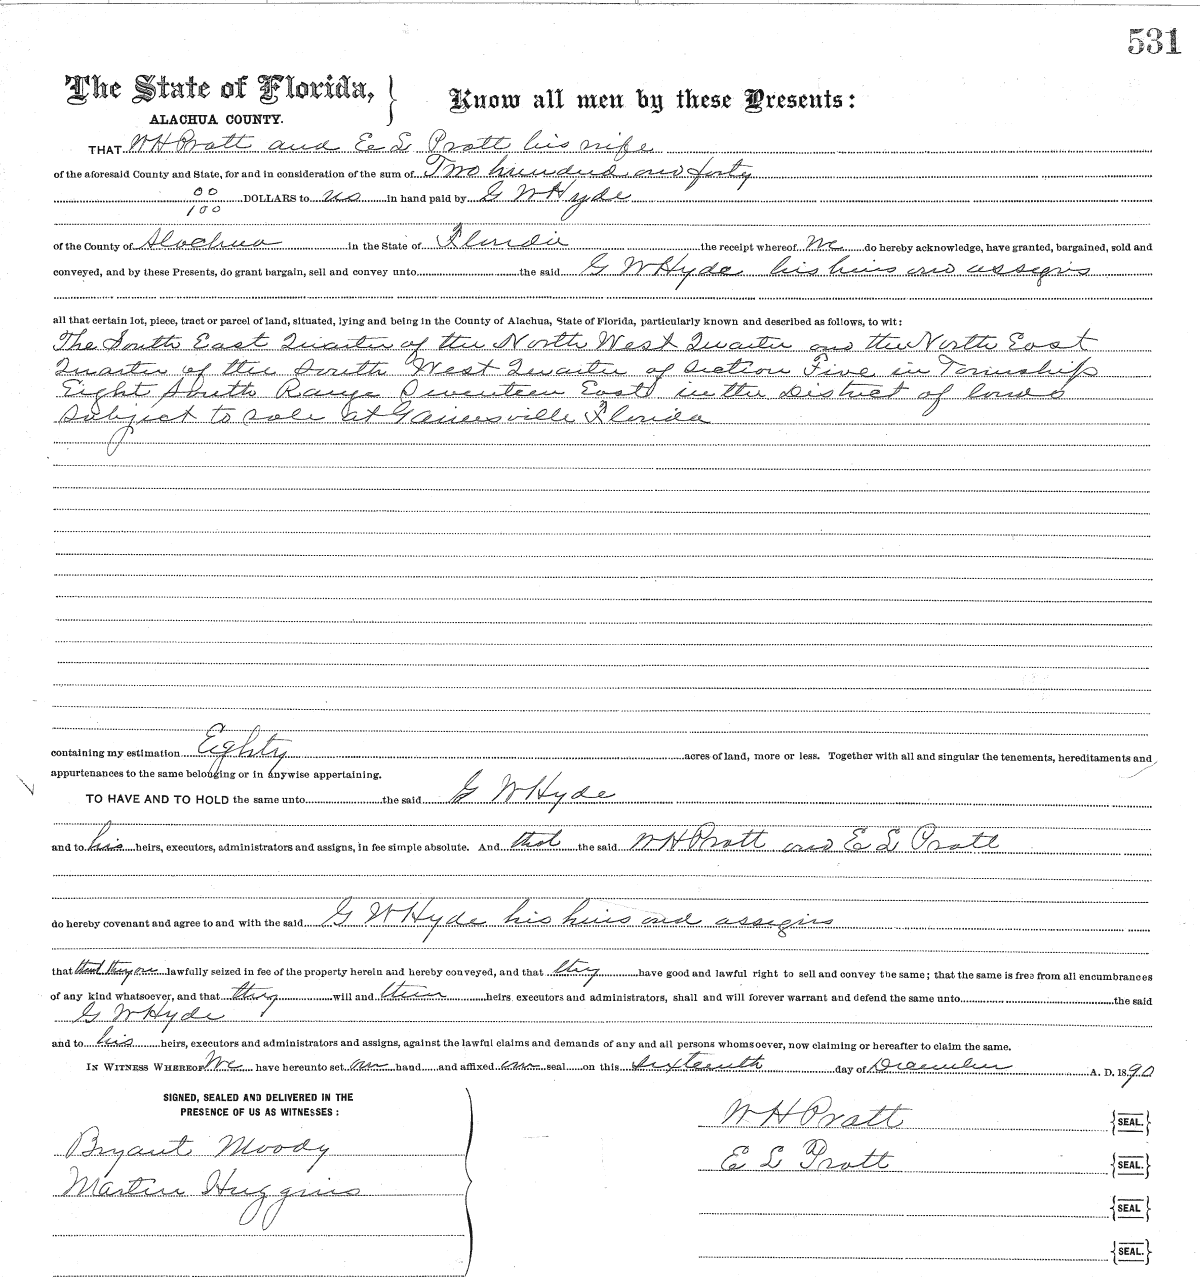 531
The State of Florida, } Know all men by these Presents:
ALACHUA COUNTY.
THAT W H Pratt and E L Pratt his wife
of the aforesaid County and State, for and in consideration of the sum of Two hundred and forty
00/100 DOLLARS to us in hand paid by G W Hyde
of the County of Alachua in the State of Florida the receipt whereof we do hereby acknowledge, have granted, bargained, sold and
conveyed, and by these Presents, do grant bargain, sell and convey unto the said G W Hyde his heirs and assigns
all that certain lot, piece, tract or parcel of land, situated, lying and being in the County of Alachua, State of Florida, particularly known and described as follows, to wit:
The South East Quarter of the North West Quarter and the North East
Quarter of the South West Quarter of Section Five in Township
Eight South Range Seventeen East in the District of lands
subject to sale at Gainesville Florida
containing my estimation Eighty acres of land, more or less. Together with all and singular the tenements, hereditaments and
appurtenances to the same belonging or in anywise appertaining.
TO HAVE AND TO HOLD the same unto the said G W Hyde
and to his heirs, executors, administrators and assigns, in fee simple absolute. And that the said W H Pratt and E L Pratt
do hereby covenant and agree to and with the said G W Hyde his heirs and assigns
that that they are lawfully seized in fee of the property herein and hereby conveyed, and that they have good and lawful right to sell and convey the same; that the same is free from all encumbrances
of any kind whatsoever, and that they will and their heirs, executors and administrators, shall and will forever warrant and defend the same unto the said
G W Hyde
and to his heirs, executors and administrators and assigns, against the lawful claims and demands of any and all persons whomsoever, now claiming or hereafter to claim the same.
IN WITNESS WHEREOF We have hereunto set our hand and affixed our seal on this Sixteenth day of December A. D. 1890
SIGNED, SEALED AND DELIVERED IN THE
PRESENCE OF US AS WITNESSES:
W H Pratt {SEAL.}
Bryant Moody
E L Pratt {SEAL.}
Martin Huggins
{SEAL}
{SEAL.}